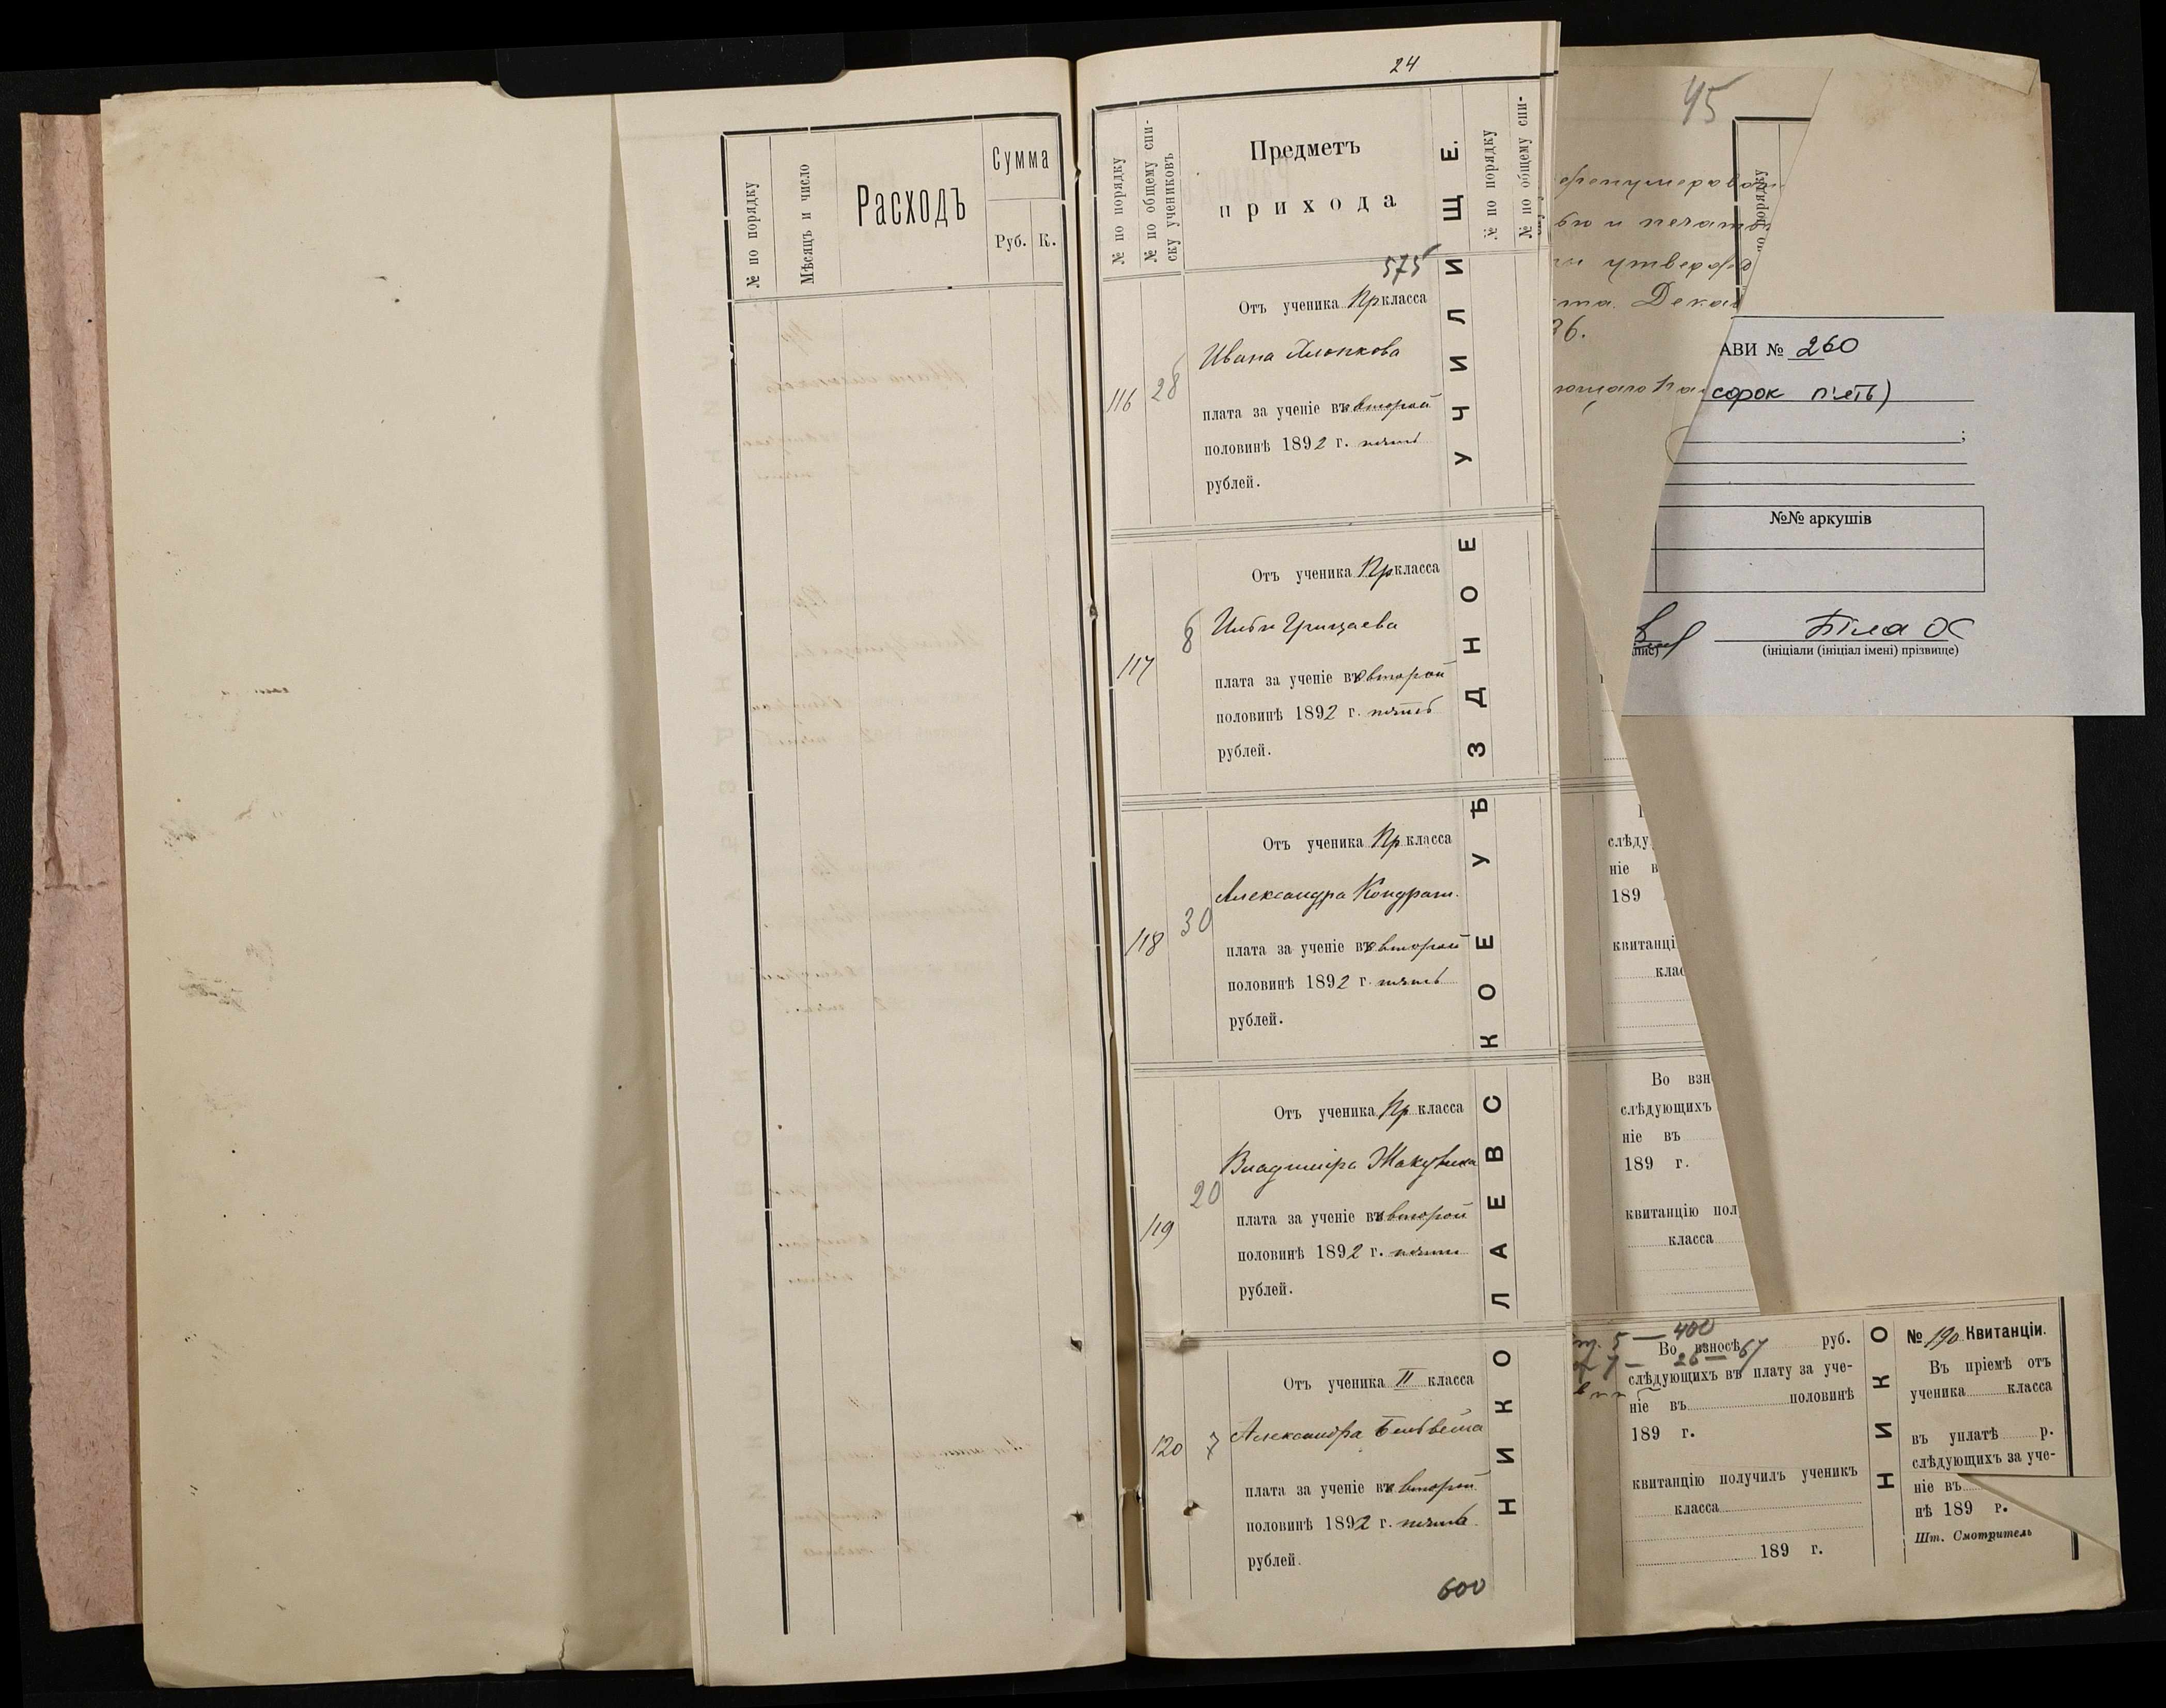 № по порядку
Мѣсяцъ и число
Расходъ
Сумма
Руб. К.
24
№ по порядку
№ по общему спи-
ску учениковъ
Предметъ
прихода
№ по порядку
№ по общему спи-
575
116
28
Отъ ученика Пр класса
Ивана
плата за ученіе въ второй
половинѣ 1892 г. пять
рублей.
117
8
Отъ ученика Пр класса
Ильи Грищаева
плата за ученіе въ второй
половинѣ 1892 г. пять
рублей.
118
30
Отъ ученика Пр класса
Александра Кондрат.
плата за ученіе въ второй
половинѣ 1892 г. пять
рублей.
119
20
Отъ ученика Пр класса
Владиміра
плата за ученіе въ второй
половинѣ 1892 г. пять
рублей.
120
7
Отъ ученика II класса
Александра
плата за ученіе въ второй
половинѣ 1892 г. пять
рублей.
600
НИКОЛАЕВСКОЕ УѢЗДНОЕ УЧИЛИЩЕ.
45
порядку
ью и печать
утверж
та. Декаб
36.
АВИ № 260
сорок п'ять)
;
№№ аркушів
Біла ОС
(ініціали (ініціал імені) прізвище)
слѣду
ніе в
189
квитанці
клас
Во взн
слѣдующихъ
ніе въ
189 г.
квитанцію пол
класса
5 — 400
7 — 26 — 67
Во взносѣ руб.
слѣдующихъ въ плату за уче-
ніе въ половинѣ
189 г.
квитанцію получилъ ученикъ
класса
189 г.
НИКО
№ 190 Квитанціи.
Въ пріемѣ отъ
ученика класса
въ уплатѣ р.
слѣдующихъ за уче-
ніе въ
нѣ 189 г.
Шт. Смотритель